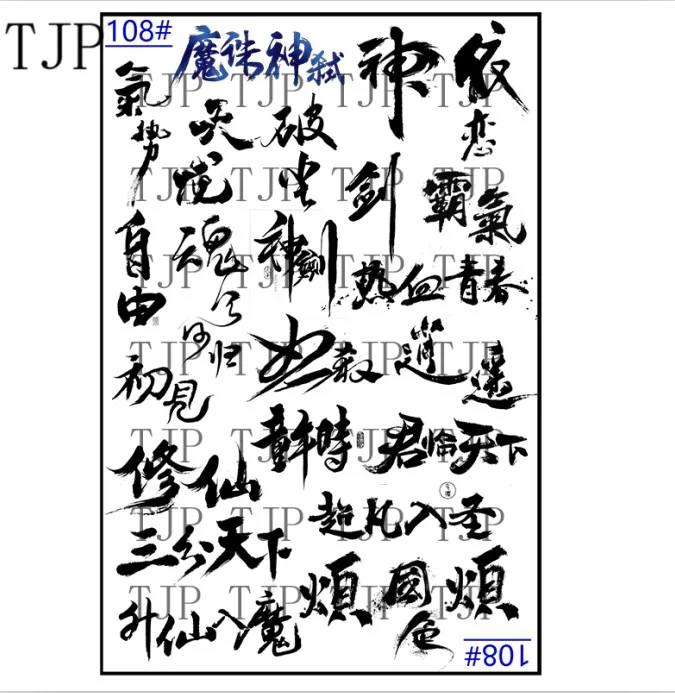 TJP
108#
魔诛神弑
氣势
神
依恋
吴
破坐
剑
霸氣
自由
魂
何归
神劍
热血青春
初見
逍遥
時
君临天下
修仙
超凡入圣
三分天下
煩
國色
煩
升仙入魔
TJP TJP TJP TJP
TJP TJP TJP TJP
TJP TJP TJP TJP
TJP TJP TJP TJP
TJP TJP TJP TJP
TJP TJP TJP TJP
TJP TJP TJP TJP
108#